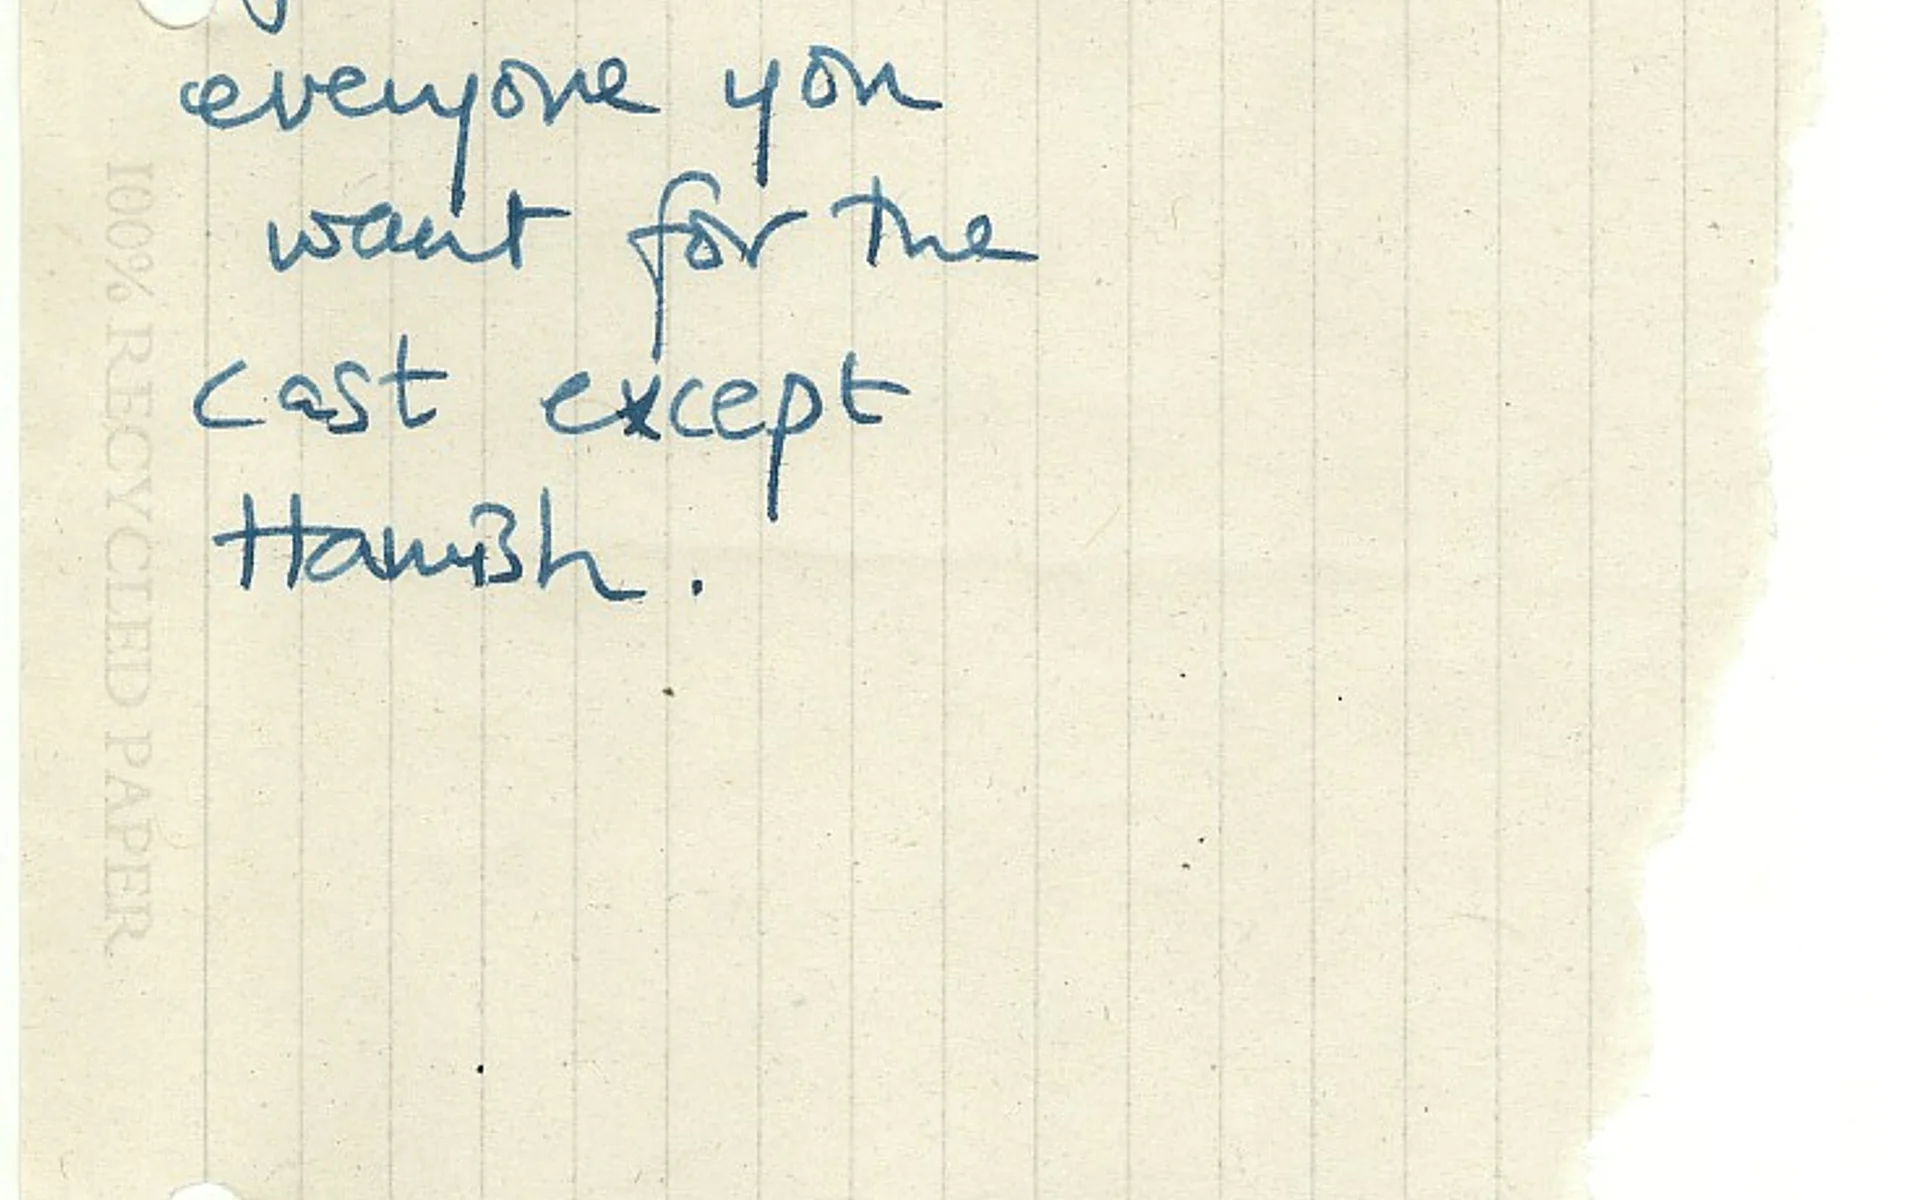 everyone you
want for the
cast except
Hamish.
100% RECYCLED PAPER